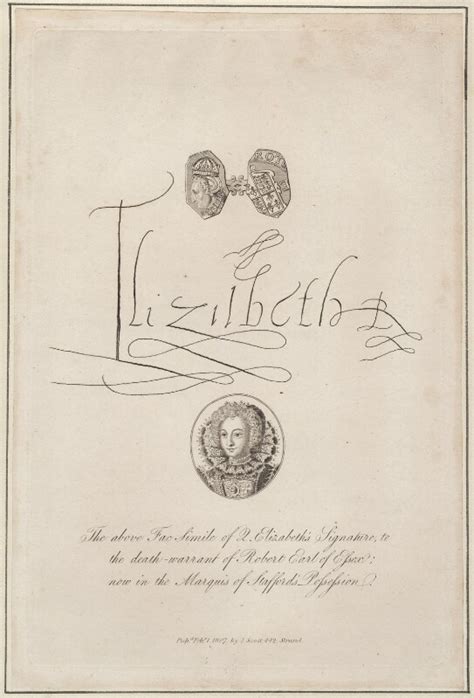 Elizabeth R
The above Fac Simile of Q. Elizabeth's Signature, to
the death-warrant of Robert Earl of Essex;
now in the Marquis of Stafford's Possession.
1, 1807, by J. Scott 442, Strand.